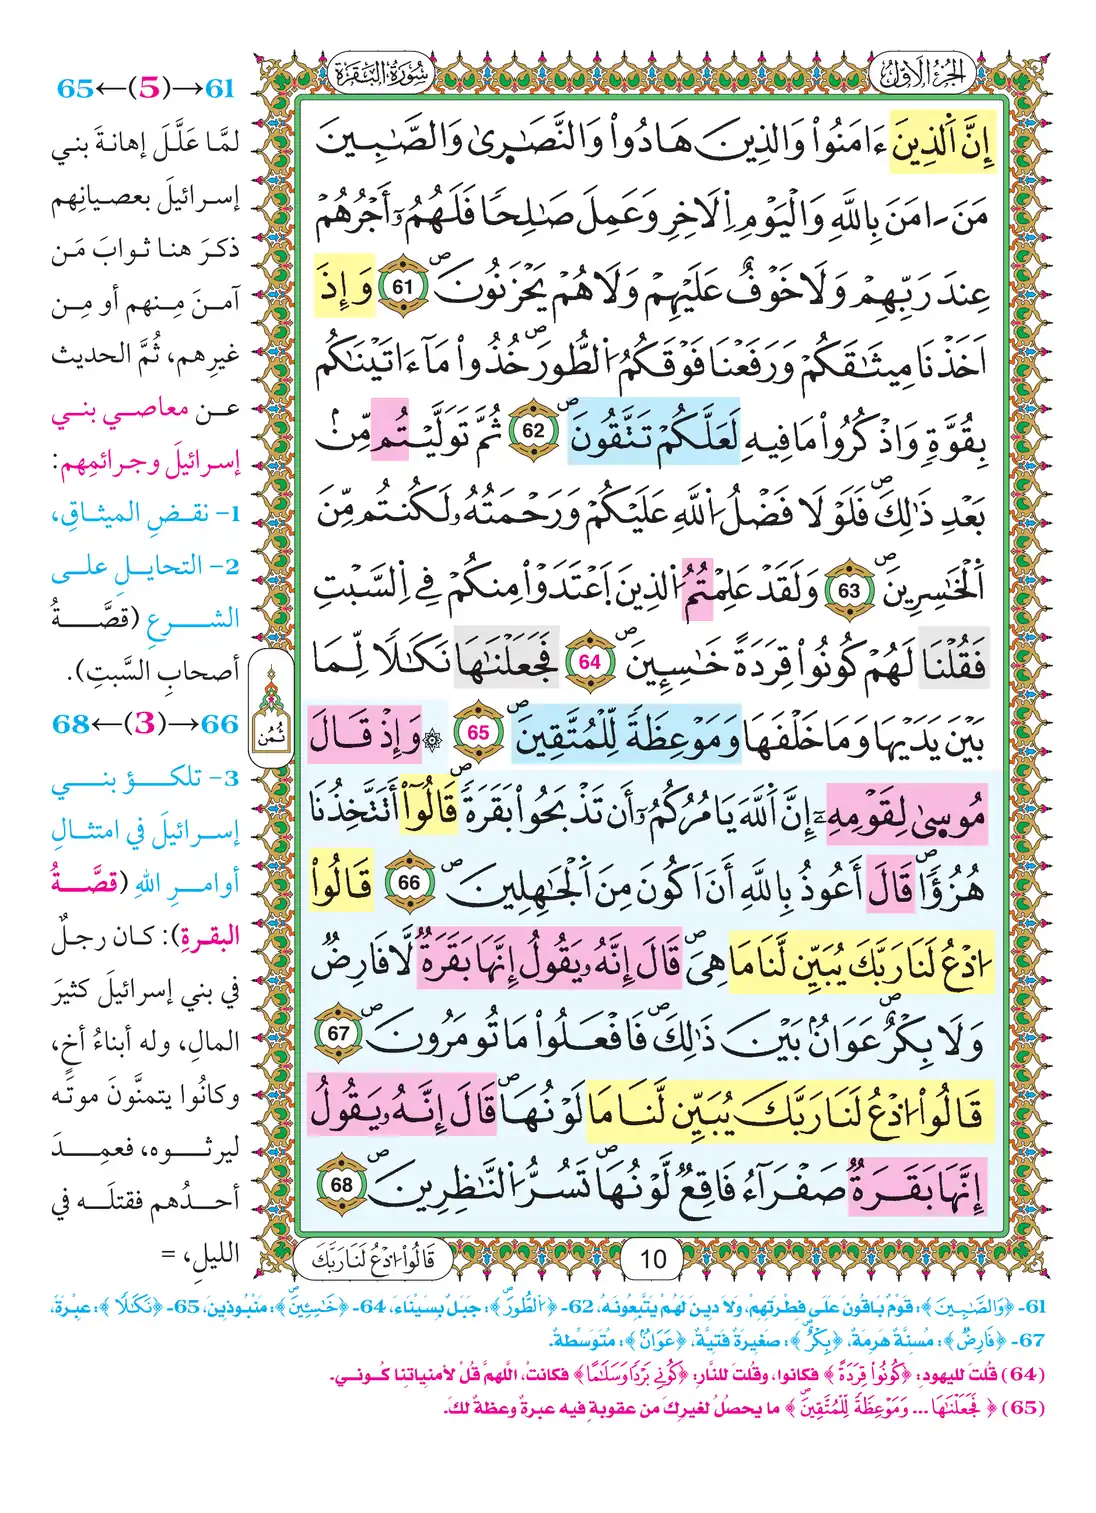 الجُزْءُ الأَوَّلُ
سُورَةُ البَقَرَةِ
إِنَّ اَ۬لذِينَ ءَامَنُواْ وَالذِينَ هَادُواْ وَالنَّصَٰر۪يٰ وَالصَّٰبِينَ
مَنَ اٰمَنَ بِاللَّهِ وَالْيَوْمِ اِ۬لَاخِرِ وَعَمِلَ صَٰلِحاٗ فَلَهُمُۥٓ أَجْرُهُمْ
عِندَ رَبِّهِمْ وَلَا خَوْفٌ عَلَيْهِمْ وَلَا هُمْ يَحْزَنُونَۖ 61 وَإِذَ
اَخَذْنَا مِيثَٰقَكُمْ وَرَفَعْنَا فَوْقَكُمُ اُ۬لطُّورَۖ خُذُواْ مَآ ءَاتَيْنَٰكُم
بِقُوَّةٖ وَاذْكُرُواْ مَا فِيهِ لَعَلَّكُمْ تَتَّقُونَۖ 62 ثُمَّ تَوَلَّيْتُم مِّنۢ
بَعْدِ ذَٰلِكَۖ فَلَوْلَا فَضْلُ اُ۬للَّهِ عَلَيْكُمْ وَرَحْمَتُهُۥ لَكُنتُم مِّنَ
اَ۬لْخَٰسِرِينَۖ 63 وَلَقَدْ عَلِمْتُمُ اُ۬لذِينَ اَ۪عْتَدَوْاْ مِنكُمْ فِے اِ۬لسَّبْتِ
فَقُلْنَا لَهُمْ كُونُواْ قِرَدَةً خَٰسِـِٕينَۖ 64 فَجَعَلْنَٰهَا نَكَٰلاٗ لِّمَا
بَيْنَ يَدَيْهَا وَمَا خَلْفَهَا وَمَوْعِظَةٗ لِّلْمُتَّقِينَۖ 65 ۞ وَإِذْ قَالَ
مُوس۪يٰ لِقَوْمِهِۦٓ إِنَّ اَ۬للَّهَ يَامُرُكُمُۥٓ أَن تَذْبَحُواْ بَقَرَةٗۖ قَالُوٓاْ أَتَتَّخِذُنَا
هُزُؤاٗۖ قَالَ أَعُوذُ بِاللَّهِ أَنَ اَكُونَ مِنَ اَ۬لْجَٰهِلِينَۖ 66 قَالُواْ
اُ۟دْعُ لَنَا رَبَّكَ يُبَيِّن لَّنَا مَا هِيَۖ قَالَ إِنَّهُۥ يَقُولُ إِنَّهَا بَقَرَةٞ لَّا فَارِضٞ
وَلَا بِكْرٌۖ عَوَانُۢ بَيْنَ ذَٰلِكَۖ فَافْعَلُواْ مَا تُومَرُونَۖ 67
قَالُواْ اُ۟دْعُ لَنَا رَبَّكَ يُبَيِّن لَّنَا مَا لَوْنُهَاۖ قَالَ إِنَّهُۥ يَقُولُ
إِنَّهَا بَقَرَةٞ صَفْرَآءُ فَاقِعٞ لَّوْنُهَاۖ تَسُرُّ اُ۬لنَّٰظِرِينَۖ 68
10
قَالُواْ اُ۟دْعُ لَنَا رَبَّكَ
ثُمُن
61→(5)←65
لمَّا عَلَّلَ إهانةَ بني
إسرائيلَ بعصيانِهم
ذكرَ هنا ثوابَ مَن
آمنَ مِنهم أو مِن
غيرِهم، ثُمَّ الحديث
عن معاصي بني
إسرائيلَ وجرائمِهم:
1- نقضِ الميثاقِ،
2- التحايلِ على
الشرعِ (قصَّةُ
أصحابِ السَّبتِ).
66→(3)←68
3- تلكؤ بني
إسرائيلَ في امتثالِ
أوامرِ اللهِ (قصَّةُ
البقرةِ): كان رجلٌ
في بني إسرائيلَ كثيرَ
المالِ، وله أبناءُ أخٍ،
وكانُوا يتمنَّونَ موتَه
ليرثوه، فعمِدَ
أحدُهم فقتلَه في
الليلِ، =
61- ﴿وَالصَّٰبِينَ﴾: قَوْمٌ بَاقُونَ عَلَى فِطْرَتِهِمْ، وَلَا دِينَ لَهُمْ يَتَّبِعُونَهُ، 62- ﴿اُ۬لطُّورَۖ﴾: جَبَلٌ بِسَيْنَاءَ، 64- ﴿خَٰسِـِٕينَۖ﴾: مَنْبُوذِينَ، 65- ﴿نَكَٰلاٗ﴾: عِبْرَةً،
67- ﴿فَارِضٞ﴾: مُسِنَّةٌ هَرِمَةٌ، ﴿بِكْرٌۖ﴾: صَغِيرَةٌ فَتِيَّةٌ، ﴿عَوَانُۢ﴾: مُتَوَسِّطَةٌ.
(64) قُلتَ لليهودِ: ﴿كُونُواْ قِرَدَةً﴾ فكانوا، وقُلتَ للنَّارِ: ﴿كُونِے بَرْداٗ وَسَلَٰماً﴾ فكانتْ، اللَّهمَّ قُلْ لأمنياتنا كُوني.
(65) ﴿فَجَعَلْنَٰهَا ... وَمَوْعِظَةٗ لِّلْمُتَّقِينَۖ﴾ ما يحصلُ لغيرِكَ من عقوبةٍ فيه عبرةٌ وعظةٌ لكَ.